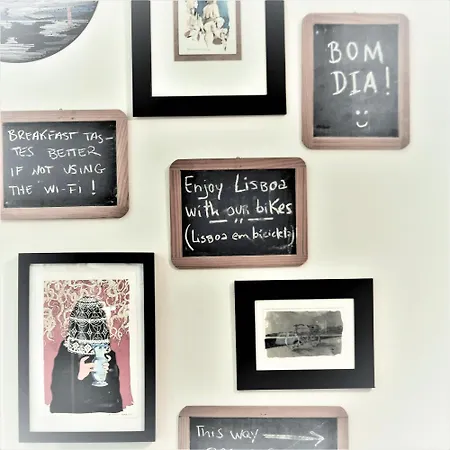 BOM
DIA!
BREAKFAST TAS-
TES BETTER
IF NOT USING
THE WI-FI!
Enjoy LISBOA
with our bikes
(Lisboa em bicicleta)
This way